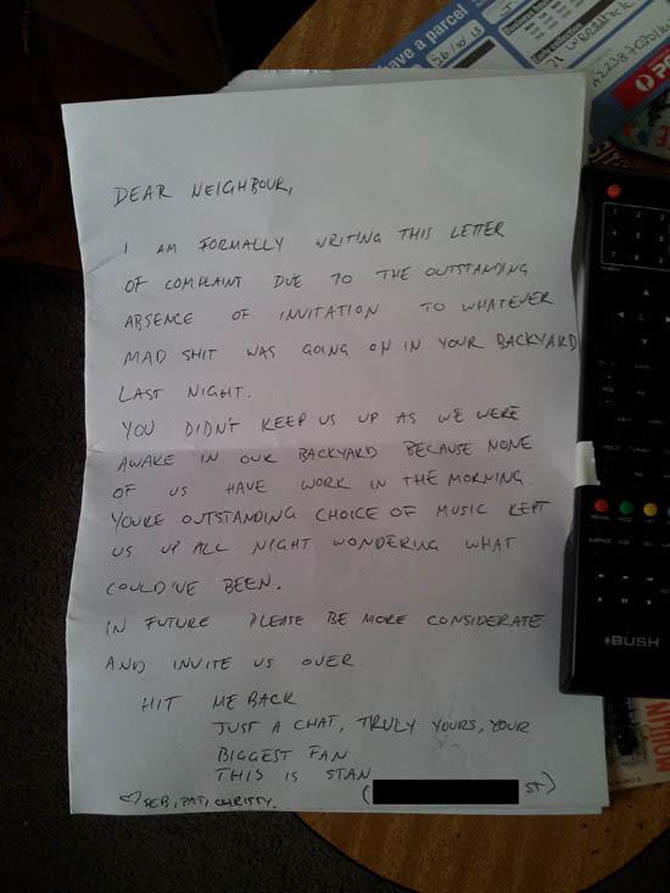 ave a parcel
26/10/13
DEAR NEIGHBOUR,
I AM FORMALLY WRITING THIS LETTER
OF COMPLAINT DUE TO THE OUTSTANDING
ABSENCE OF INVITATION TO WHATEVER
MAD SHIT WAS GOING ON IN YOUR BACKYARD
LAST NIGHT.
YOU DIDNT KEEP US UP AS WE WERE
AWAKE IN OUR BACKYARD BECAUSE NONE
OF US HAVE WORK IN THE MORNING.
YOURE OUTSTANDING CHOICE OF MUSIC KEPT
US UP ALL NIGHT WONDERING WHAT
COULD'VE BEEN.
IN FUTURE PLEASE BE MORE CONSIDERATE
AND INVITE US OVER
HIT ME BACK
JUST A CHAT, TRULY YOURS, YOUR
BIGGEST FAN
THIS IS STAN
( ST)
♡ SEB, PAT, CHRISTY.
BUSH